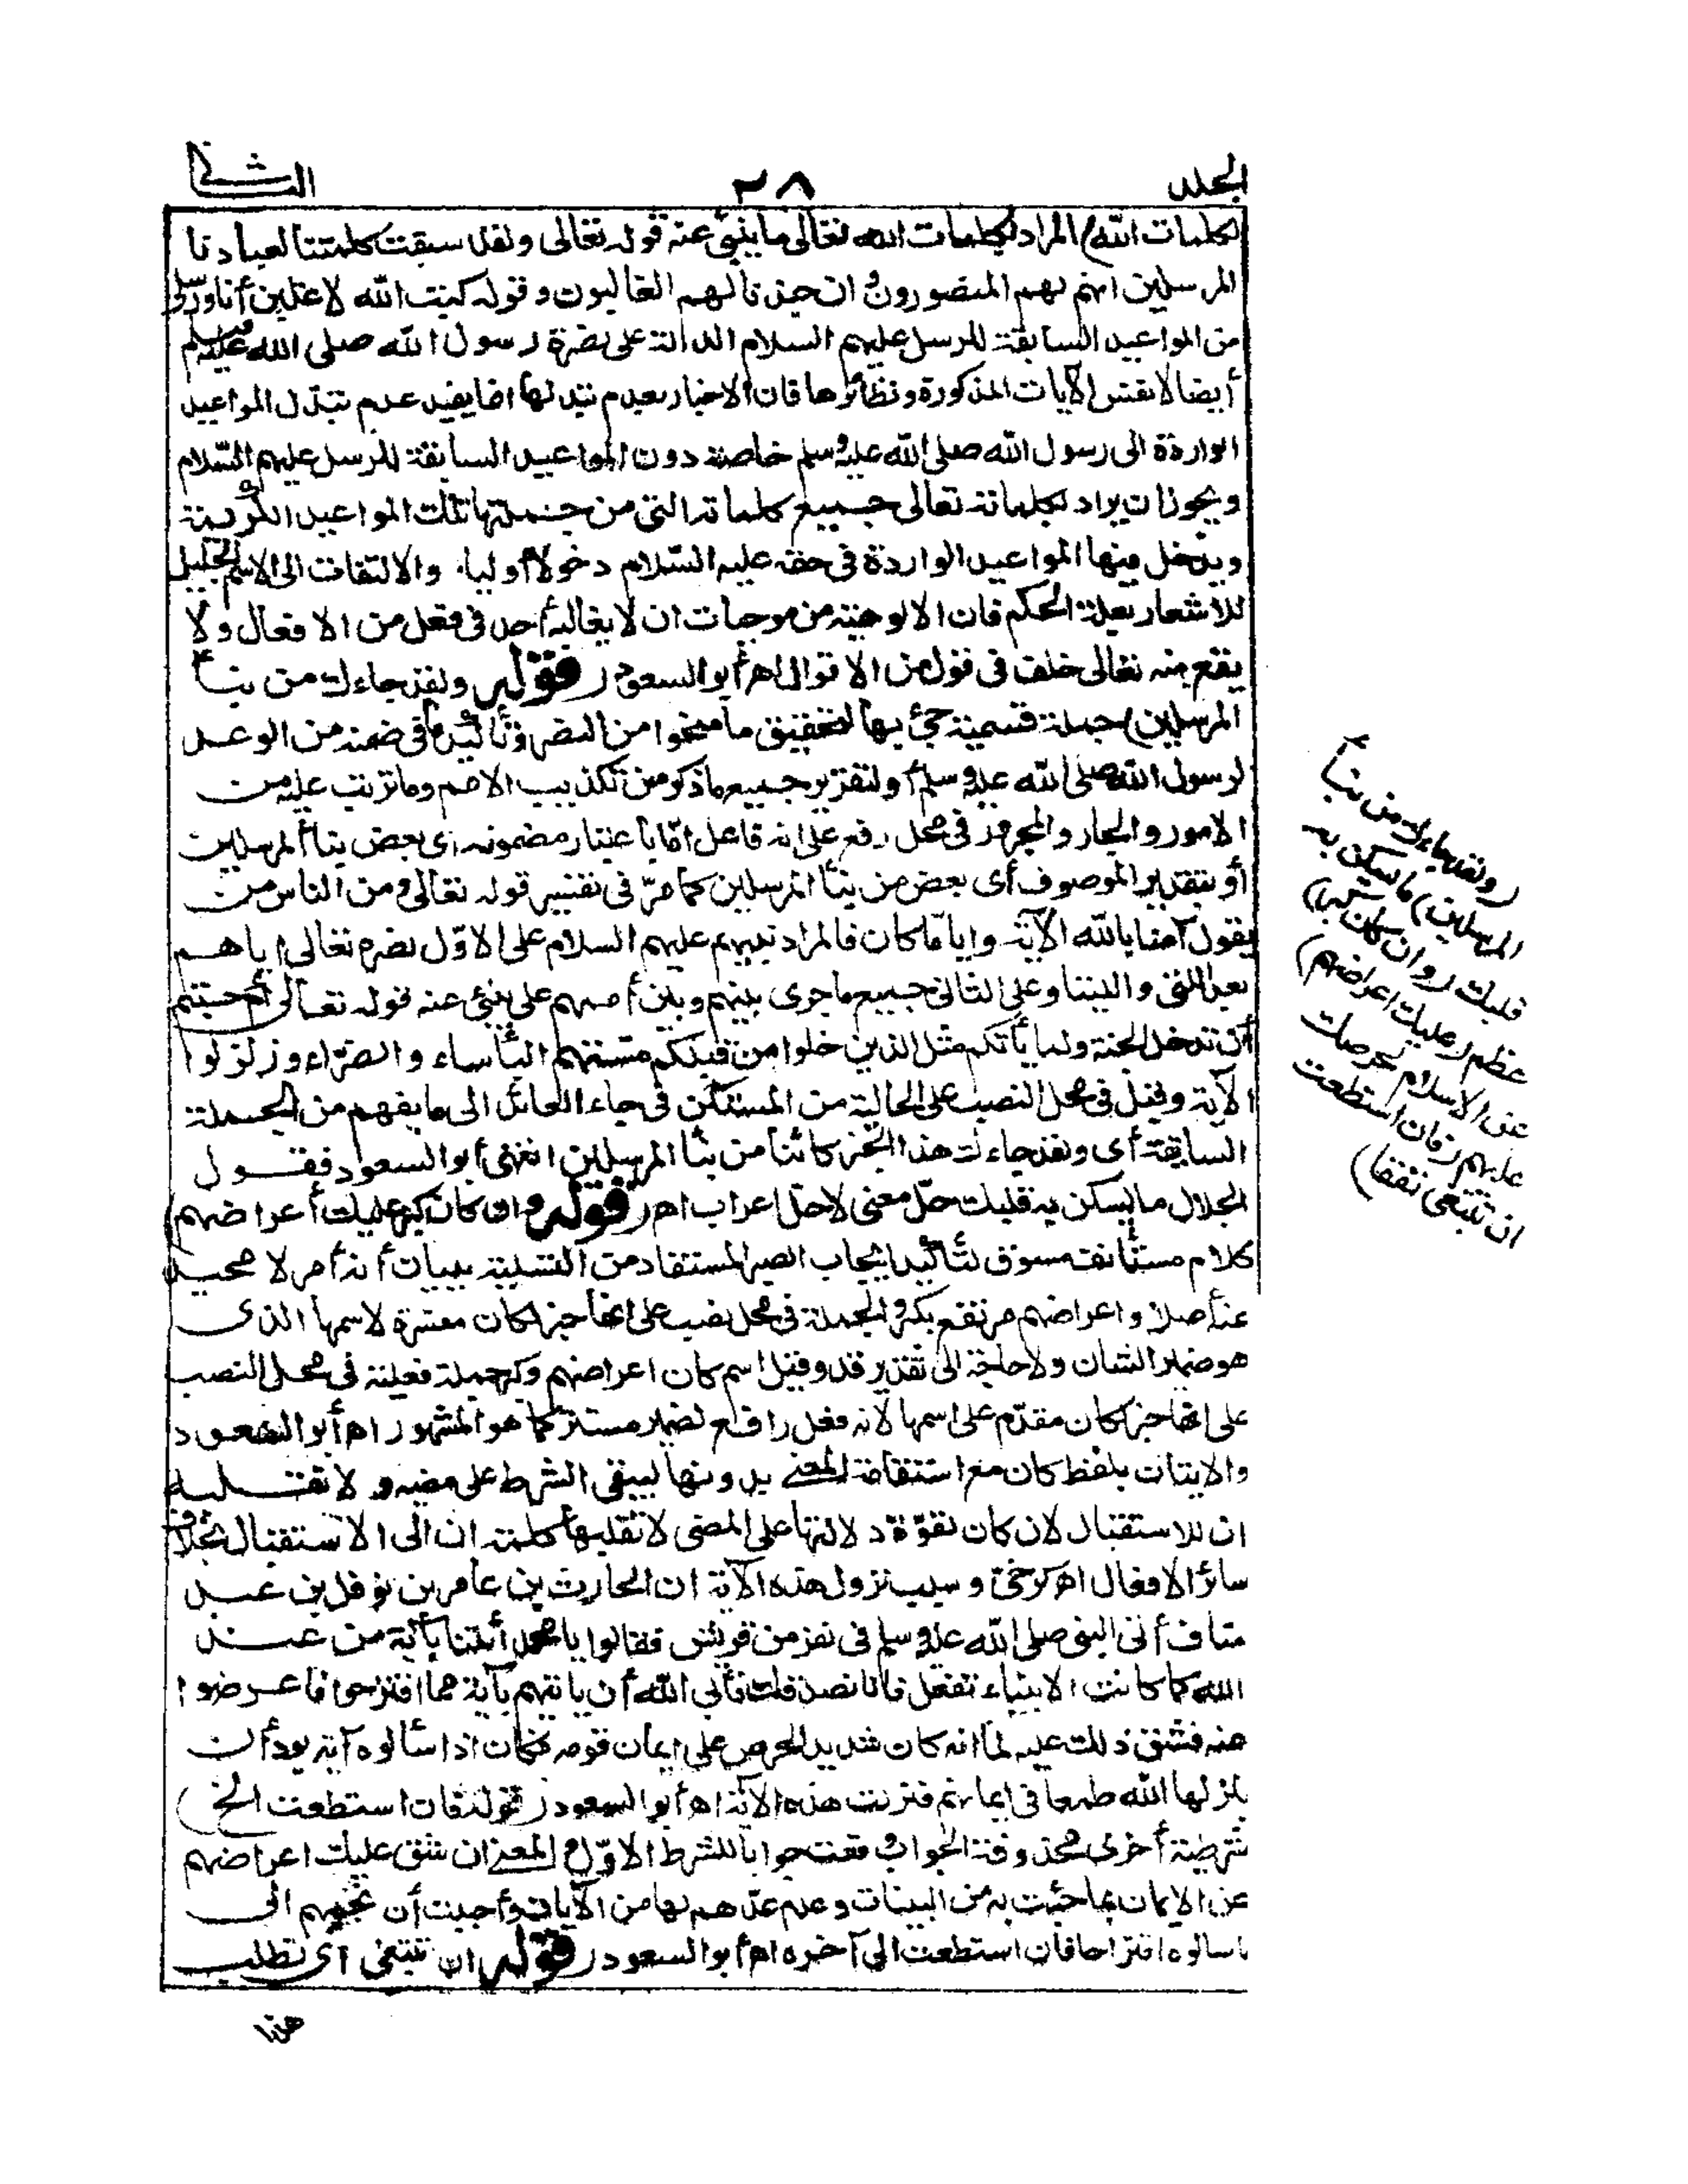 الجلد
٢٨
الثانى
لكلمات الله) المراد بكلمات الله تعالى ما ينبئ عنه قوله تعالى ولقد سبقت كلمتنا لعبادنا
المرسلين انهم لهم المنصورون وان جندنا لهم الغالبون وقوله كتب الله لاغلبن أنا ورسلى
من المواعيد السابقة للرسل عليهم السلام الدالة على نصرة رسول الله صلى الله عليه وسلم
أيضا لا نفس الآيات المذكورة ونظائرها فان الاخبار بعدم تبدلها انما يفيد عدم تبدل المواعيد
الواردة الى رسول الله صلى الله عليه وسلم خاصة دون المواعيد السابقة للرسل عليهم السلام
ويجوز أن يراد بكلماته تعالى جميع كلماته التى من جملتها تلك المواعيد الكريمة
ويدخل فيها المواعيد الواردة فى حقه عليه السلام دخولا أوليا والالتفات الى الاسم الجليل
للاشعار بعلة الحكم فان الالوهية من موجبات ان لا يغالبه أحد فى فعل من الافعال ولا
يقع منه تعالى خلف فى قول من الاقوال اهـ أبو السعود (قوله ولقد جاءك من نبأ
المرسلين) جملة قسمية جئ بها لتحقيق ما منحوا من النصر وتأكيد ما فى ضمنه من الوعد
لرسول الله صلى الله عليه وسلم أو لتقرير جميع ما ذكر من تكذيب الامم وما ترتب عليه من
الامور والجار والمجرور فى محل رفع على انه فاعل امّا باعتبار مضمونه أى بعض نبأ المرسلين
أو بتقدير الموصوف أى بعض من نبأ المرسلين كما مرّ فى تفسير قوله تعالى ومن الناس من
يقول آمنا بالله الآية وايا ما كان فالمراد نبيهم عليهم السلام على الاوّل نصره تعالى اياهم
بعد التى والليتا وعلى الثانى جميع ما جرى بينهم وبين أممهم على ينبئ عنه قوله تعالى أم حسبتم
أن تدخلوا الجنة ولما يأتكم مثل الذين خلوا من قبلكم مستهم البأساء والضراء وزلزلوا
الآية وقيل فى محل النصب على الحالية من المستكن فى جاء العائد الى ما يفهم من الجملة
السابقة أى ولقد جاءك هذا الخبر كائنا من نبأ المرسلين انتهى أبو السعود فقول
الجلال ما يسكن به قلبك حلّ معنى لا حل اعراب اهـ (قوله وان كان كبر عليك أعراضهم)
كلام مستأنف مسوق لتأكيد ايجاب الصبر المستفاد من التسلية ببيان أنه أمر لا محيد
عنه أصلا واعراضهم مرتفع بكبر والجملة فى محل نصب على انها خبر لكان مفسرة لاسمها الذى
هو ضمير الشان ولا حاجة الى تقدير قد وقيل اسم كان اعراضهم وكبر جملة فعلية فى محل النصب
على انها خبر لكان مقدّم على اسمها لانه فعل رافع لضمير مستتر كما هو المشهور اهـ أبو السعود
والاتيان بلفظ كان مع استقامة المعنى بدونها ليبقى الشرط على مضيه ولا تقلبه
ان للاستقبال لان كان لقوّة دلالتها على المضى لا تقلبها كلمة ان الى الاستقبال بخلاف
سائر الافعال اهـ كرخى وسبب نزول هذه الآية ان الحارث بن عامر بن نوفل بن عبد
مناف أتى النبى صلى الله عليه وسلم فى نفر من قريش فقالوا يا محمد أئتنا بآية من عند
الله كما كانت الانبياء تفعل فانا نصدقك فأبى الله أن يأتيهم بآية مما اقترحوا فاعرضوا
عنه فشق ذلك عليه لما انه كان شديد الحرص على ايمان قومه فكان اذا سألوه آية يود أن
ينزلها الله طمعا فى ايمانهم فنزلت هذه الآية اهـ أبو السعود (قوله فان استطعت الخ)
شرطية أخرى محذوفة الجواب وقعت جوابا للشرط الاوّل والمعنى ان شق عليك اعراضهم
عن الايمان بما جئت به من البينات وعدم عدّهم لها من الآيات وأحببت أن تجيبهم الى
ما سالوه اقتراحا فان استطعت الى آخره اهـ أبو السعود (قوله ان تبتغى) أى تطلب
هذا
(ولقد جاءك من نبأ
المرسلين) ما يسكن به
قلبك (وان كان كبر)
عظم (عليك اعراضهم)
عن الاسلام لحرصك
عليهم (فان استطعت
ان تبتغى نفقا)